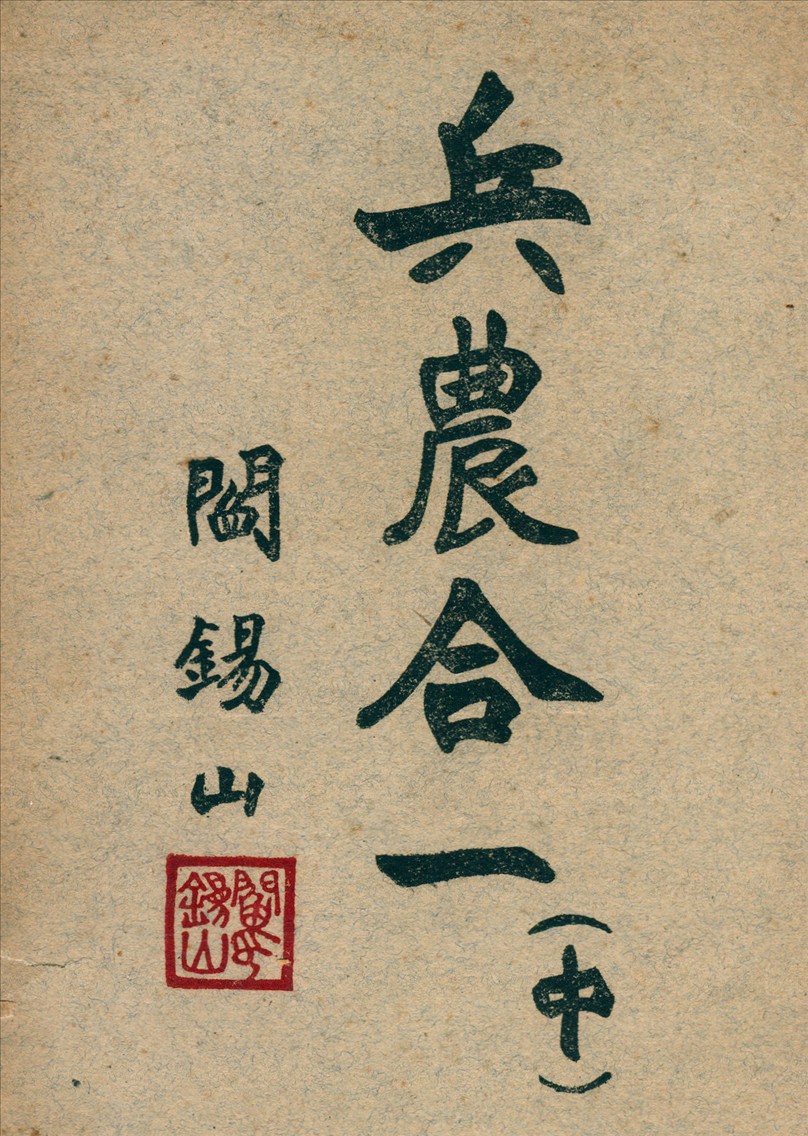 兵農合一（中）
閻錫山
閻錫山